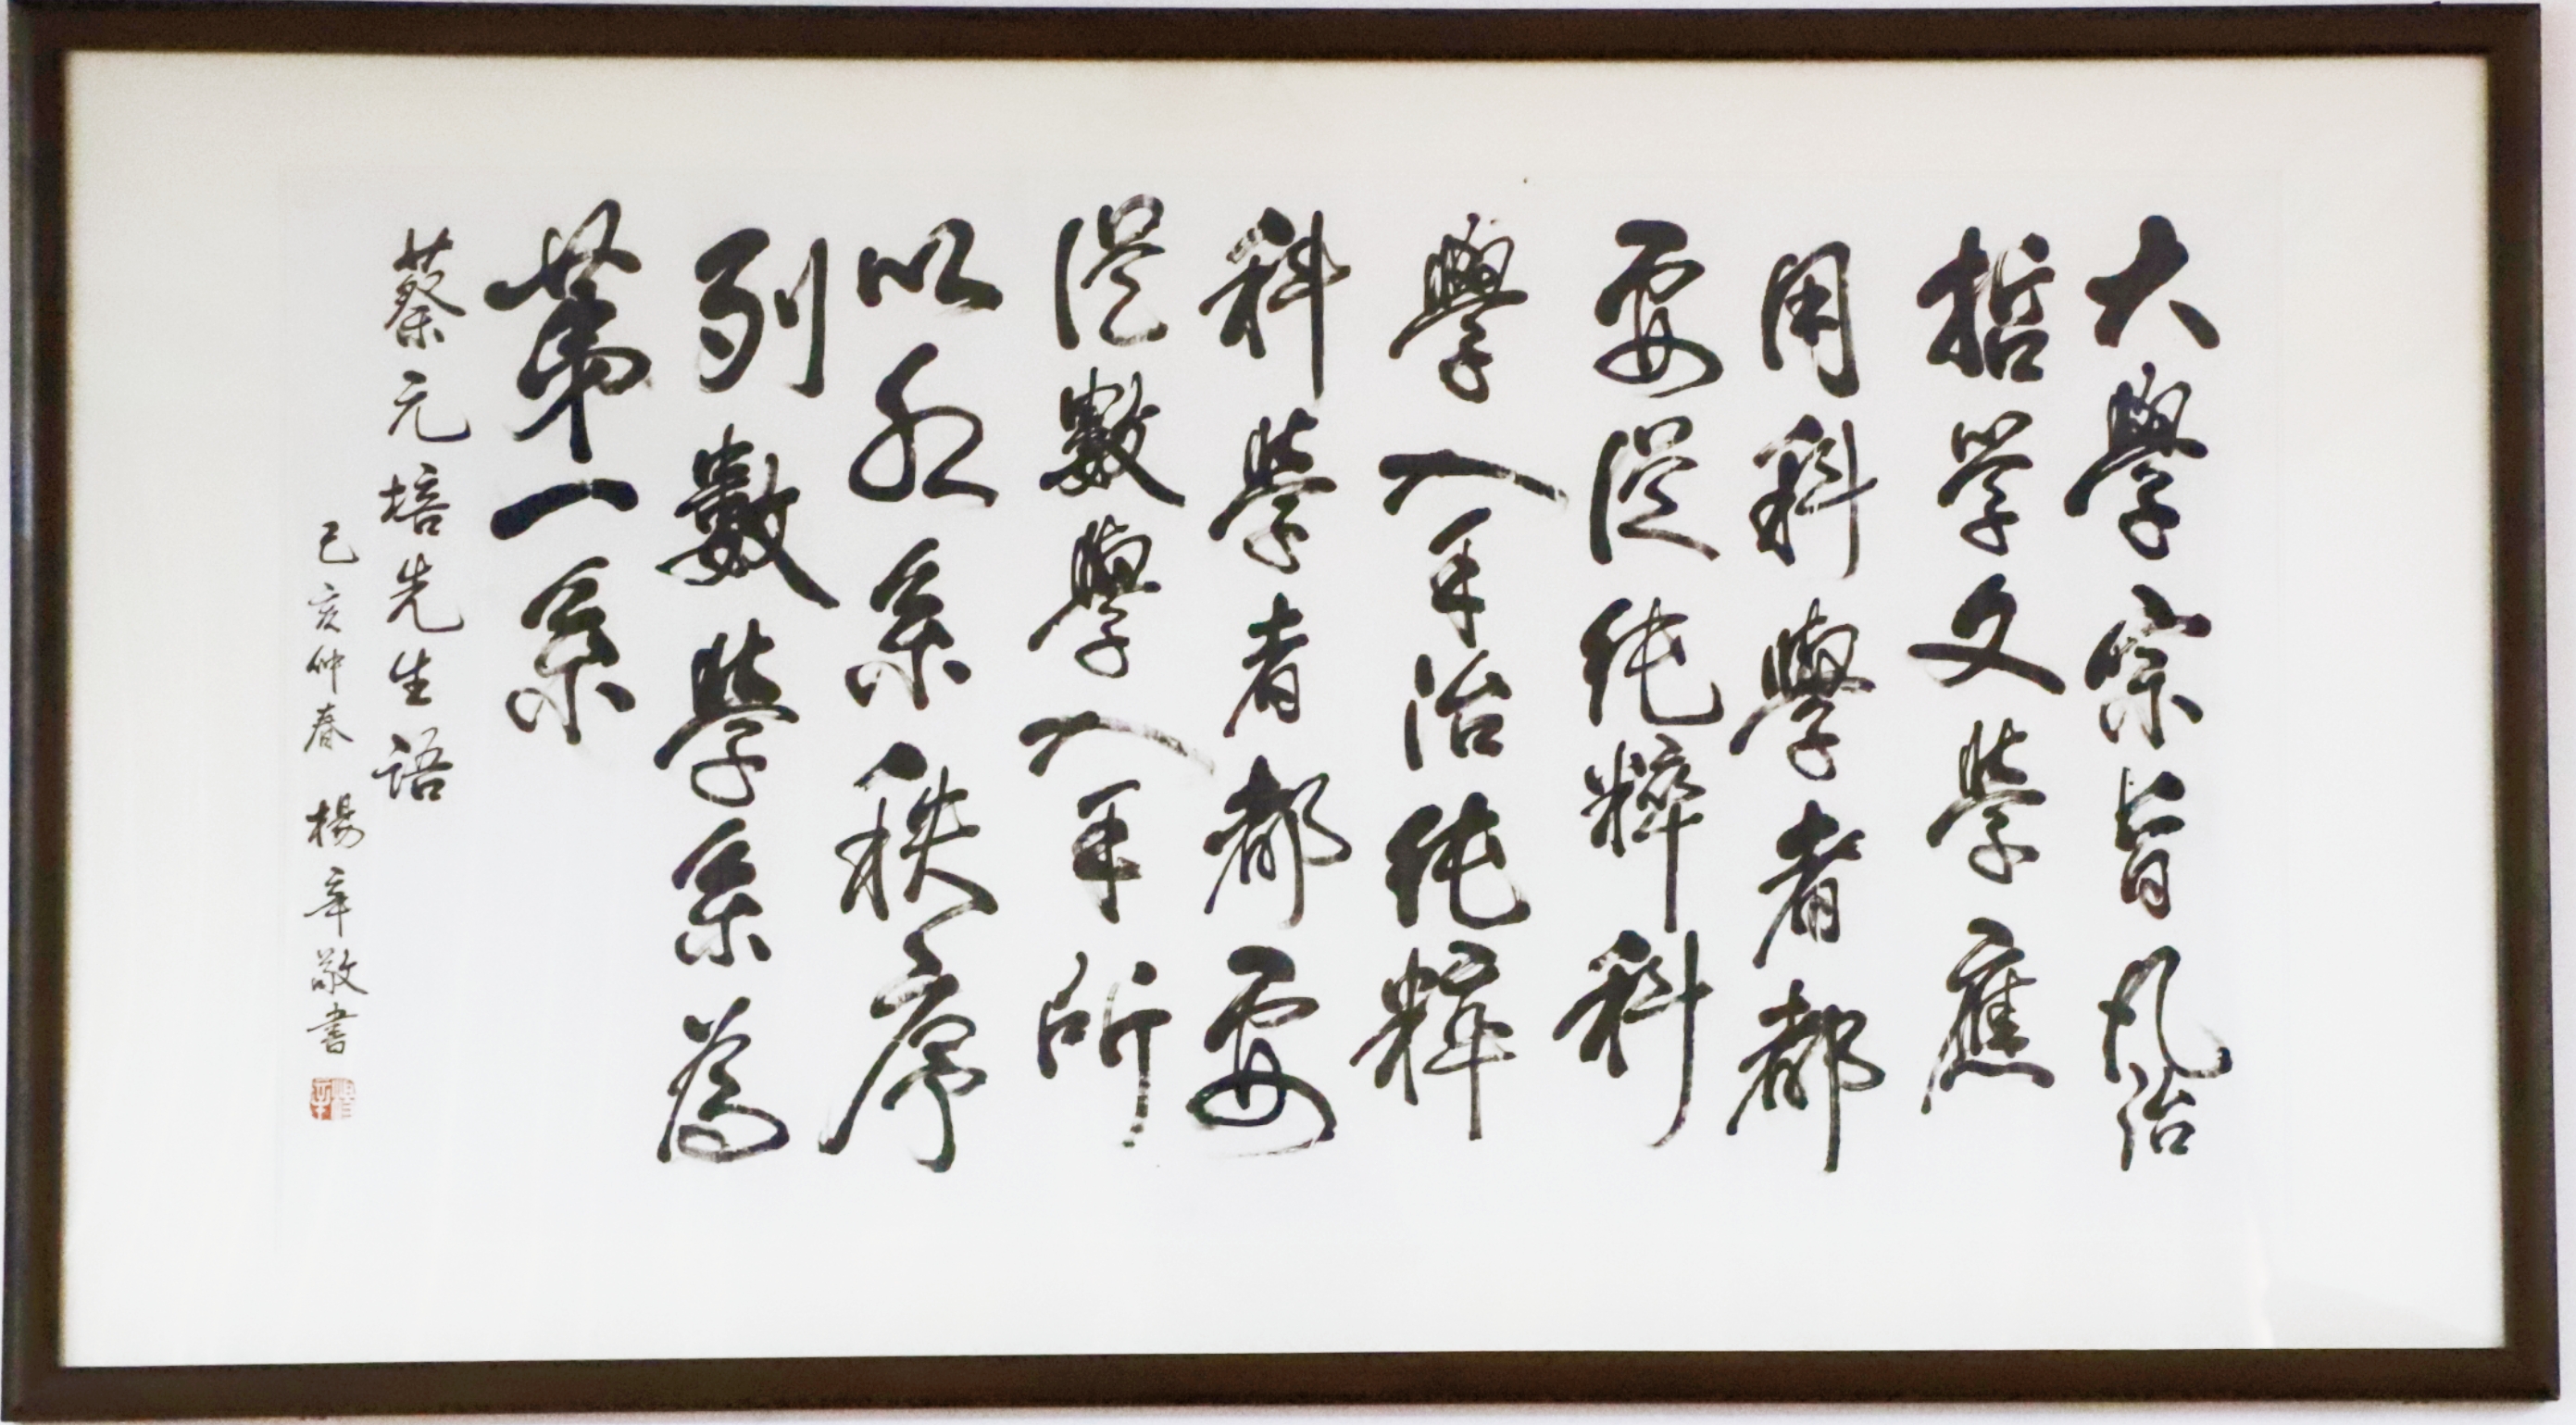 大學宗旨凡治
哲学文學應
用科學者都
要從純粹科
學入手治純粹
科學者都要
從數學入手所
以於系秩序
列數學系為
第一系
蔡元培先生语
己亥仲春 楊辛敬書
楊辛